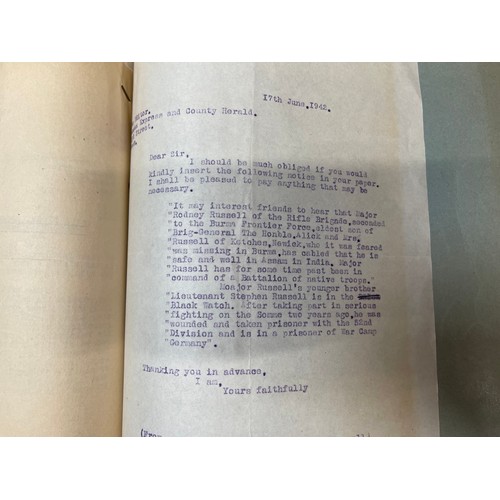 17th June.1942.
Express and County Herald.
Street.
Dear Sir,
I should be much obliged if you would
kindly insert the following notice in your paper.
I shall be pleased to pay anything that may be
necessary.
"It may interest friends to hear that Major
"Rodney Russell of the Rifle Brigade, seconded
"to the Burma Frontier Force, eldest son of
"Brig-General The Honble. Alick and Mrs.
"Russell of Kotches, Newick, who it was feared
"was missing in Burma, has cabled that he is
"safe and well in Assam in India. Major
"Russell has for some time past been in
"command of a Battalion of native troops."
Moajor Russell's younger brother
"Lieutenant Stephen Russell is in the
"Black Watch. After taking part in serious
"fighting on the Somme two years ago, he was
"wounded and taken prisoner with the 52nd
"Division and is in a prisoner of War Camp
"Germany".
Thanking you in advance,
I am,
Yours faithfully